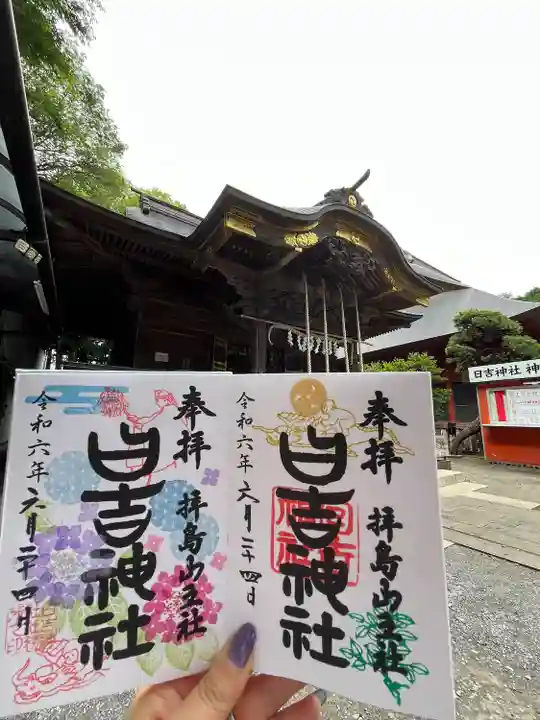 奉拝
拝島山王社
日吉神社
令和六年六月二十四日
奉拝
拝島山王社
日吉神社
令和六年六月二十四日
日吉神社 神